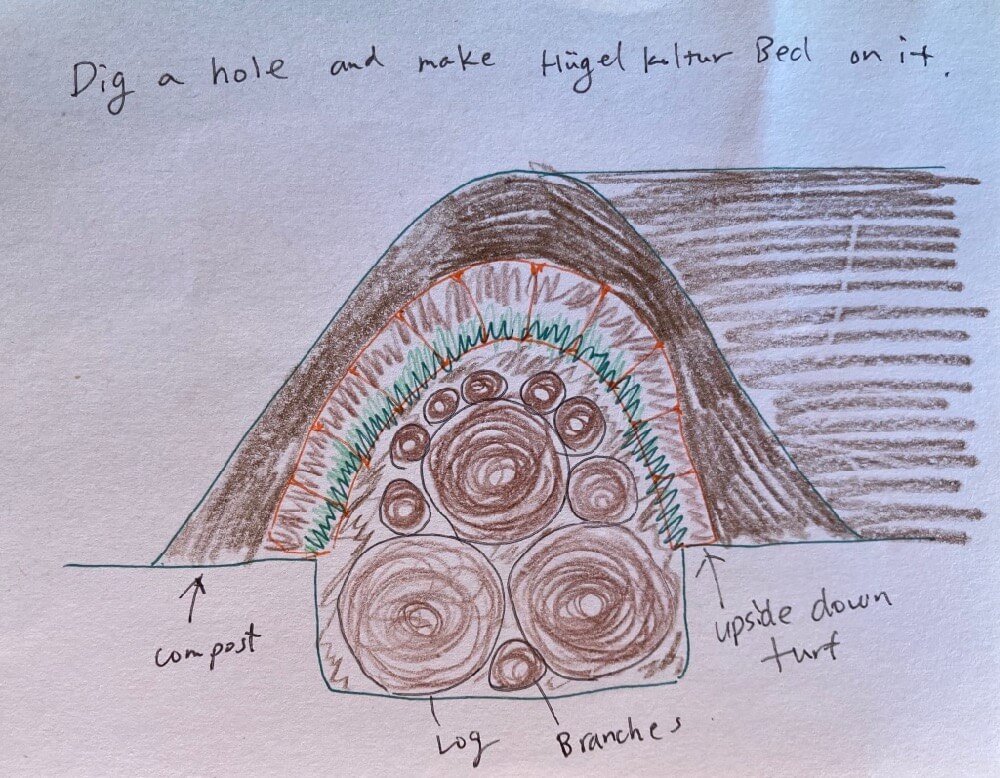 Dig a hole and make Hügelkultur Bed on it.
compost
upside down
turf
Log
Branches